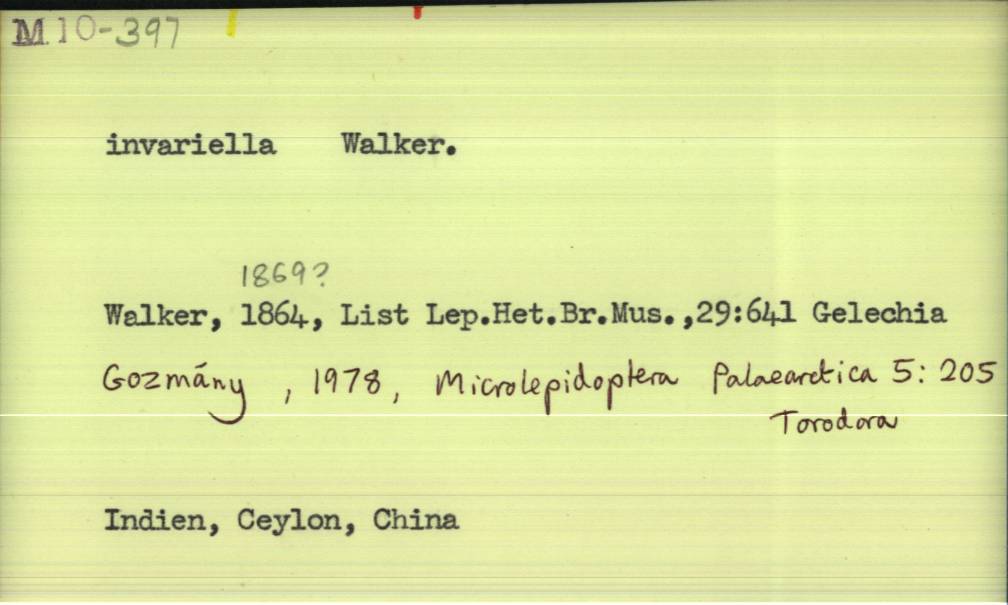 M10-397
invariella Walker.
1869?
Walker, 1864, List Lep.Het.Br.Mus.,29:641 Gelechia
Gozmány, 1978, Microlepidoptera Palaearctica 5: 205
Torodora
Indien, Ceylon, China